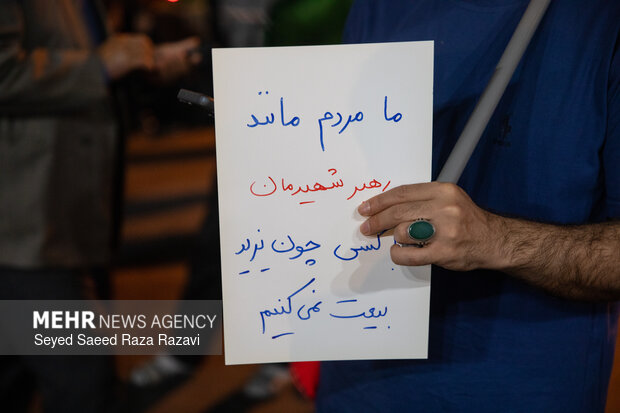 ما مردم مانند
رهبر شهیدمان
با کسی چون یزید
بیعت نمی کنیم
MEHR NEWS AGENCY
Seyed Saeed Raza Razavi